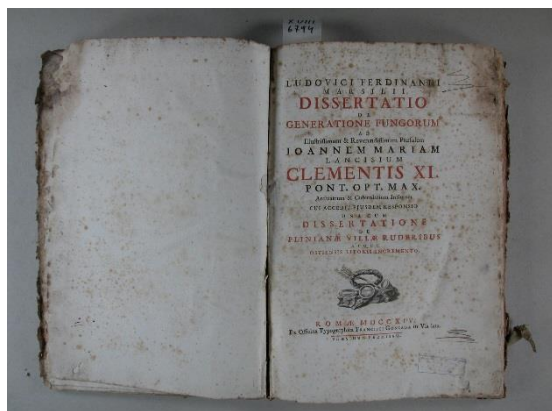 K VIII
6794
LUDOVICI FERDINANDI
MARSILII
DISSERTATIO
DE
GENERATIONE FUNGORUM
AD
Illustrissimum & Reverendissimum Præsulem
IOANNEM MARIAM
LANCISIUM
CLEMENTIS XI.
PONT. OPT. MAX.
Intimum & Cubicularium
CUI ACCEDIT EIUSDEM RESPONSIO
UNA CUM
DISSERTATIONE
DE
PLINIANÆ VILLÆ RUDERIBUS
ATQUE
OSTIENSIS LITORIS INCREMENTO.
ROMÆ MDCCXIV.
Ex Officina Typographica FRANCISCI GONZAGÆ in Via lata.